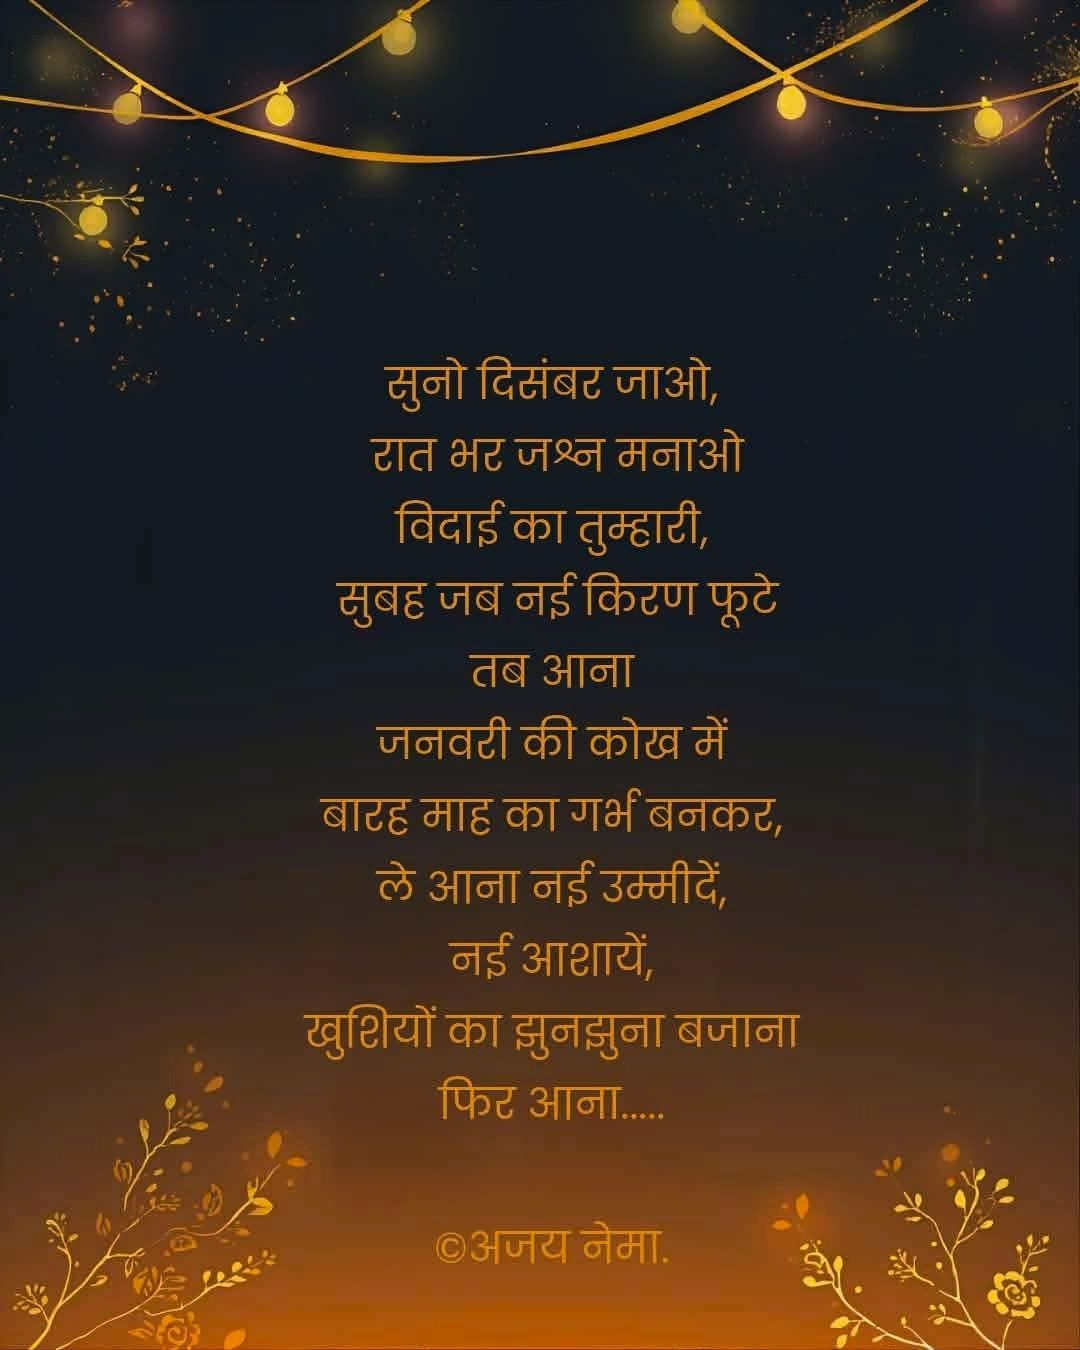 सुनो दिसंबर जाओ,
रात भर जश्न मनाओ
विदाई का तुम्हारी,
सुबह जब नई किरण फूटे
तब आना
जनवरी की कोख में
बारह माह का गर्भ बनकर,
ले आना नई उम्मीदें,
नई आशायें,
खुशियों का झुनझुना बजाना
फिर आना.....
©अजय नेमा.